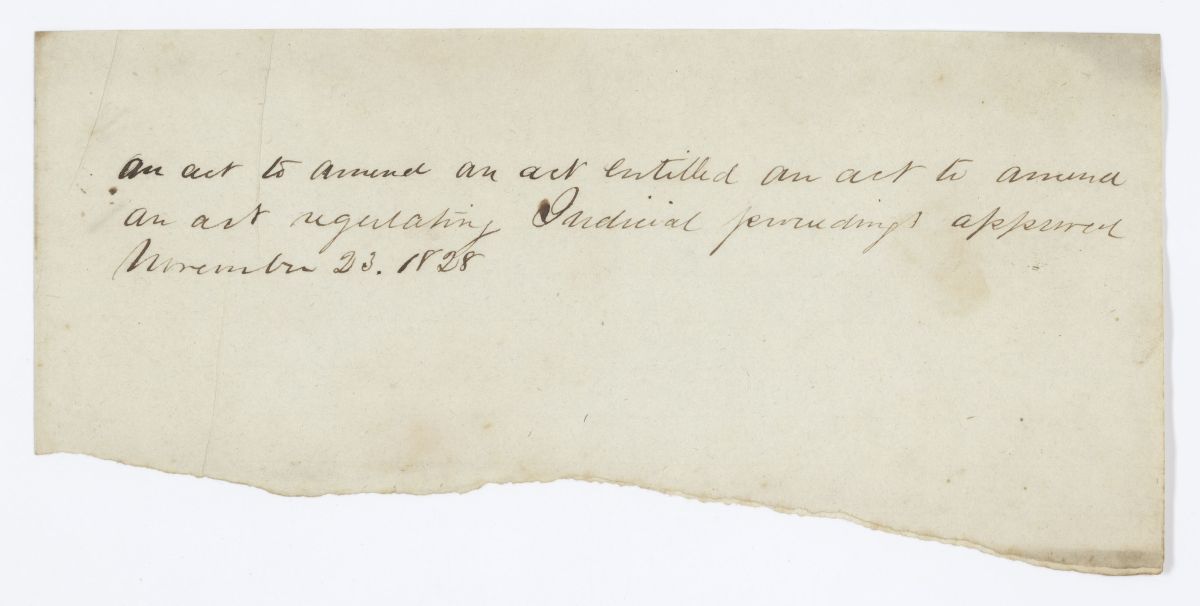 an act to amend an act entitled an act to amend
an act regulating Judicial proceedings approved
November 23. 1828